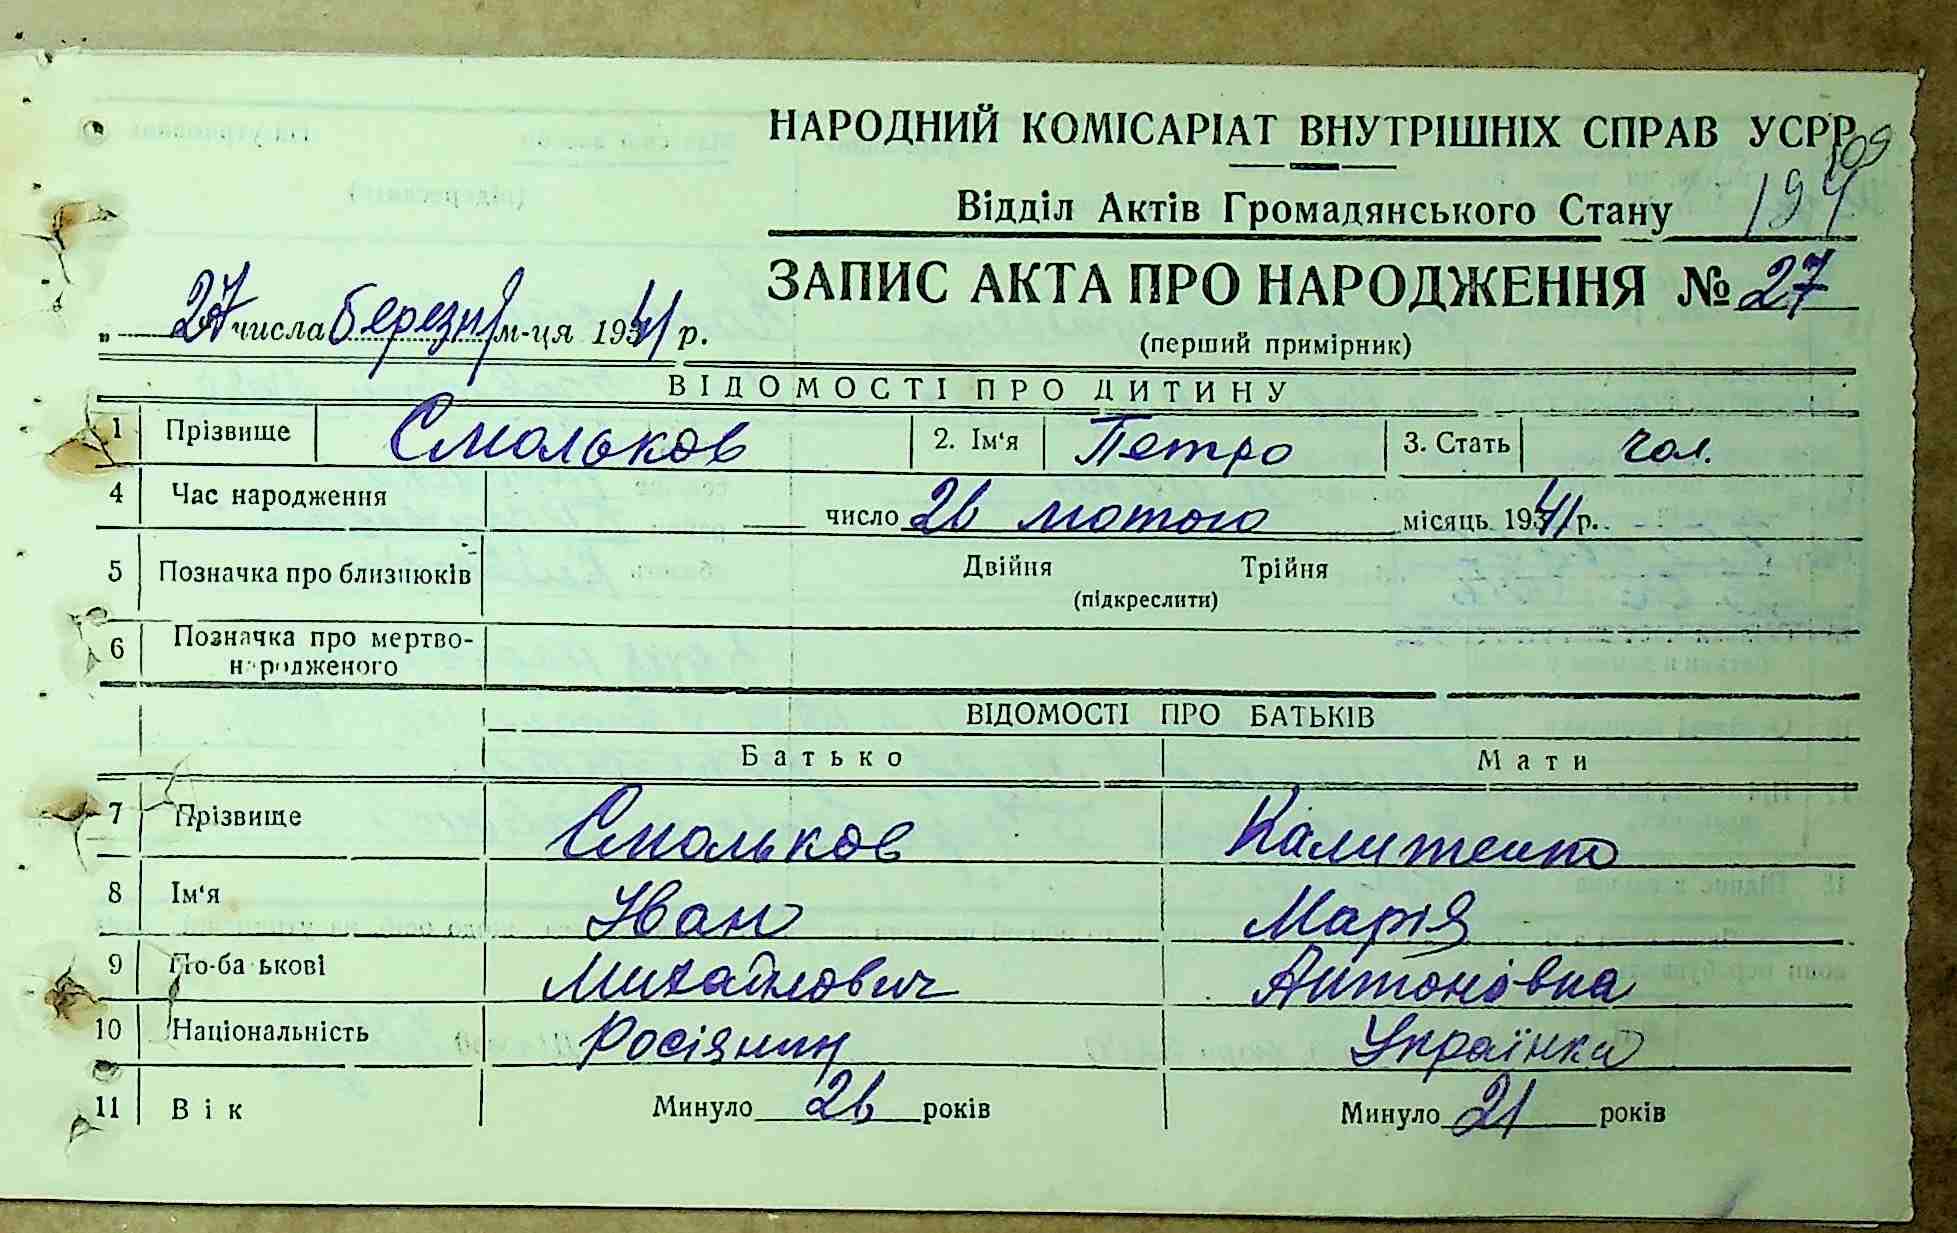 НАРОДНИЙ КОМІСАРІАТ ВНУТРІШНІХ СПРАВ УСРР
109
Відділ Актів Громадянського Стану 194
ЗАПИС АКТА ПРО НАРОДЖЕННЯ № 27
„ 27 числа березня м-ця 1941 р.
(перший примірник)
ВІДОМОСТІ ПРО ДИТИНУ
1 Прізвище Смольков 2. Ім‘я Петро 3. Стать чол.
4 Час народження число 26 лютого місяць 1941 р.
5 Позначка про близнюків Двійня Трійня
(підкреслити)
6 Позначка про мертво-
народженого
ВІДОМОСТІ ПРО БАТЬКІВ
Батько Мати
7 Прізвище Смольков
8 Ім‘я Іван Марія
9 По-ба ькові Михайлович Антонівна
10 Національність Росіянин Українка
11 Вік Минуло 26 років Минуло 21 років